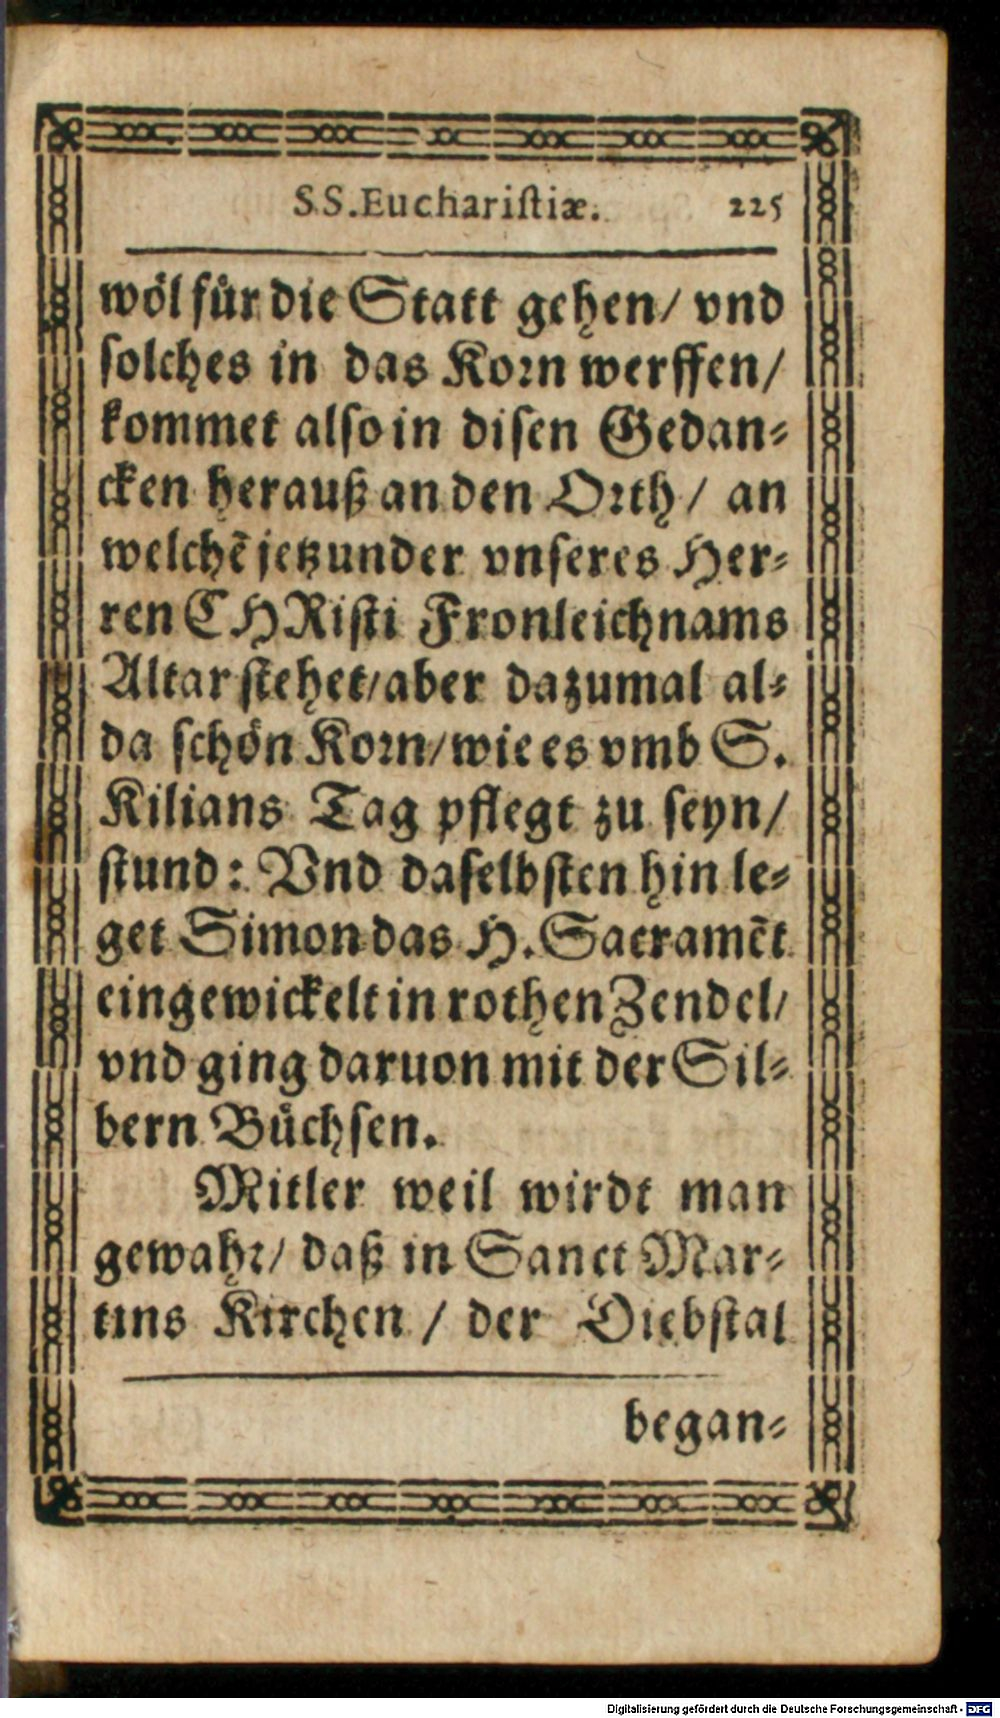 SS. Euchariſtiæ. 225
wöl für die Statt gehen/ vnd
ſolches in das Korn werffen/
kommet alſo in diſen Gedan⸗
cken herauß an den Orth/ an
welchē jetzunder vnſeres Her⸗
ren CHRiſti Fronleichnams
Altar ſtehet/ aber dazumal al⸗
da ſchön Korn/ wie es vmb S.
Kilians Tag pflegt zu ſeyn/
ſtund: Vnd daſelbſten hin le⸗
get Simon das H. Sacramēt
eingewickelt in rothen Zendel/
vnd ging daruon mit der Sil⸗
bern Büchſen.
Mitler weil wirdt man
gewahr/ daß in Sanct Mar⸗
tins Kirchen / der Diebſtal
began⸗
Digitalisierung gefördert durch die Deutsche Forschungsgemeinschaft - DFG